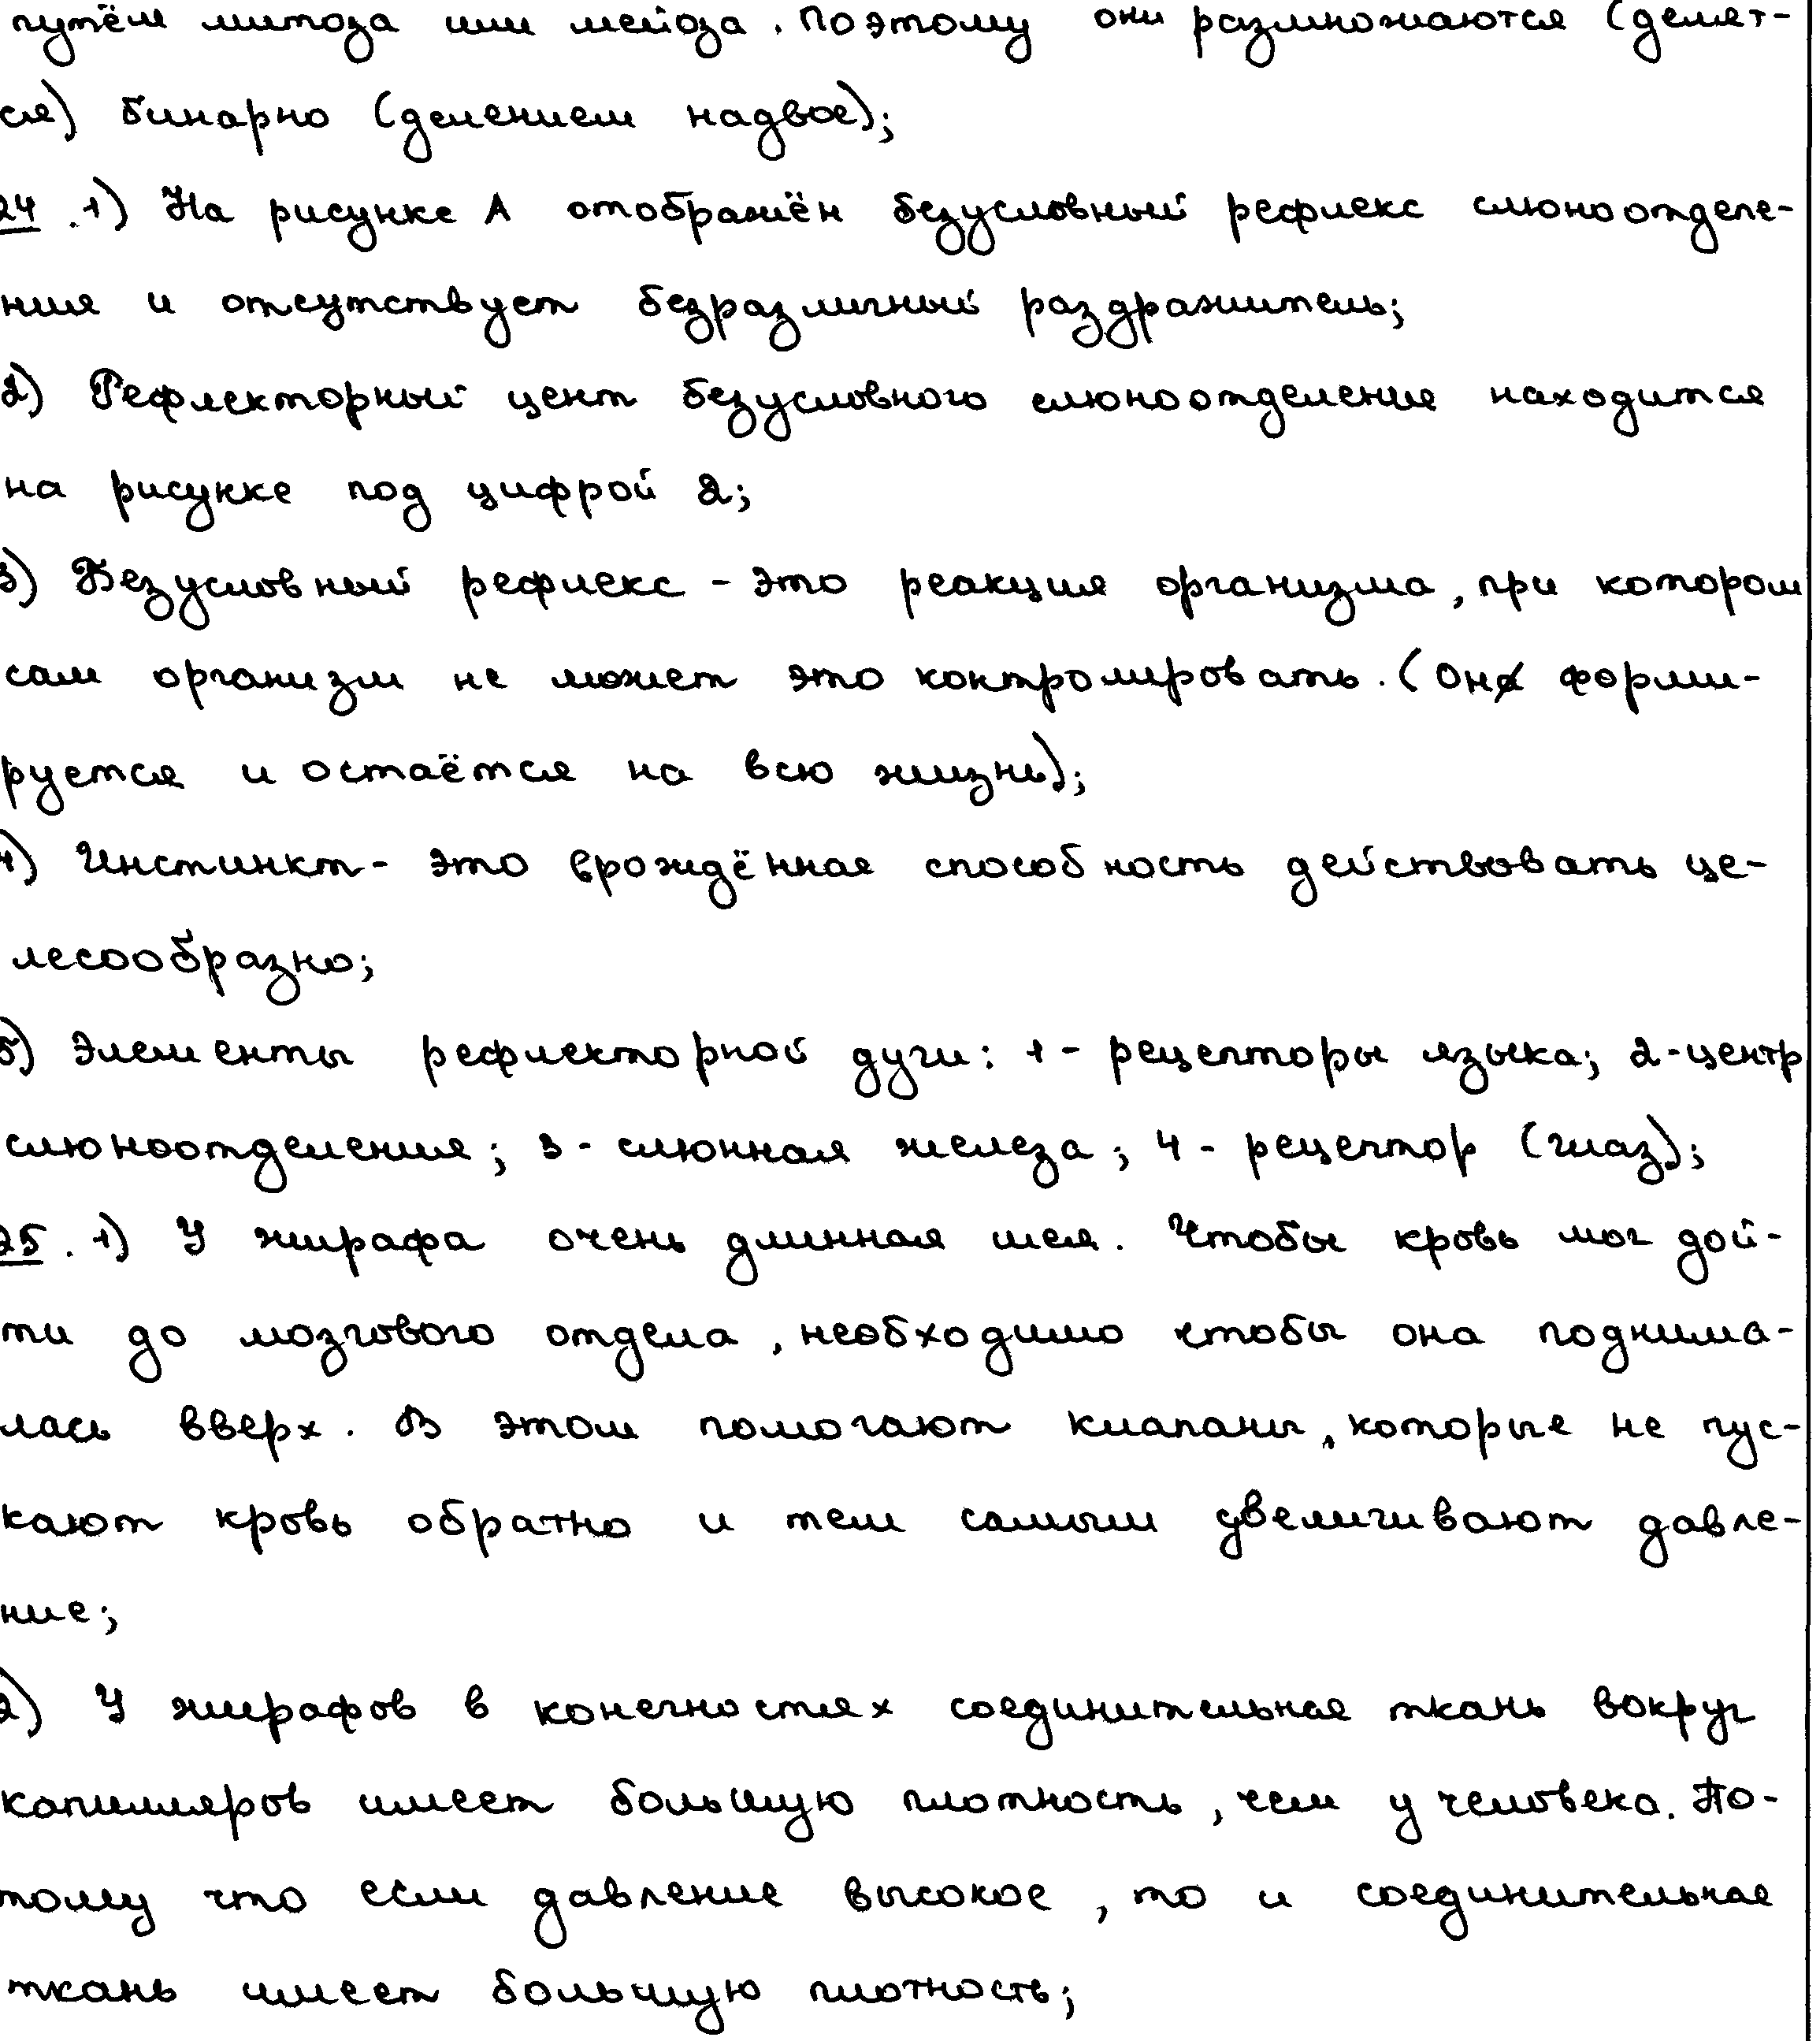 путём митоза или мейоза. Поэтому они размножаются (делят-
ся) бинарно (делением надвое);
24. 1) На рисунке А отображён безусловный рефлекс слюноотделе-
ния и отсутствует безразличный раздражитель;
2) Рефлекторный цент безусловного слюноотделение находится
на рисунке под цифрой 2;
3) Безусловный рефлекс - это реакция организма, при котором
сам организм не может это контролировать. (Он форми-
руется и остаётся на всю жизнь);
4) Инстинкт - это врождённая способность действовать це-
лесообразно;
5) Элементы рефлекторной дуги: 1 - рецепторы языка; 2 - центр
слюноотделения; 3 - слюнная железа; 4 - рецептор (глаз);
25. 1) У жирафа очень длинная шея. Чтобы кровь мог дой-
ти до мозгового отдела, необходимо чтобы она поднима-
лась вверх. В этом помогают клапаны, которые не пус-
кают кровь обратно и тем самым увеличивают давле-
ние;
2) У жирафов в конечностях соединительная ткань вокруг
капилляров имеет большую плотность, чем у человека. По-
тому что если давление высокое, то и соединительная
ткань имеет большую плотность;